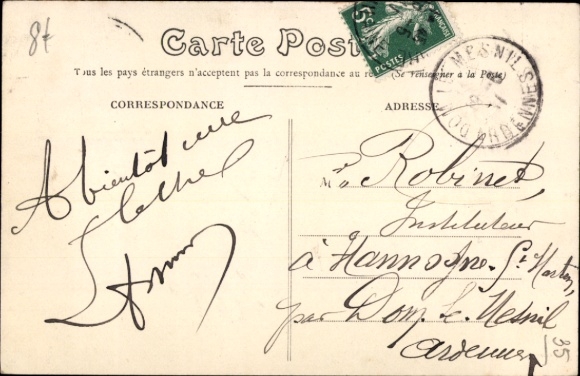 8f
5c
POSTES
Carte Postale
Tous les pays étrangers n'acceptent pas la correspondance au (Se renseigner a la Poste)
CORRESPONDANCE
ADRESSE
LE MESNIL
ARDENNES
A bientôt une
lettre
Mr Robinet,
Instituteur
à Hannogne-St Martin,
par Dom-le-Mesnil
Ardennes
35